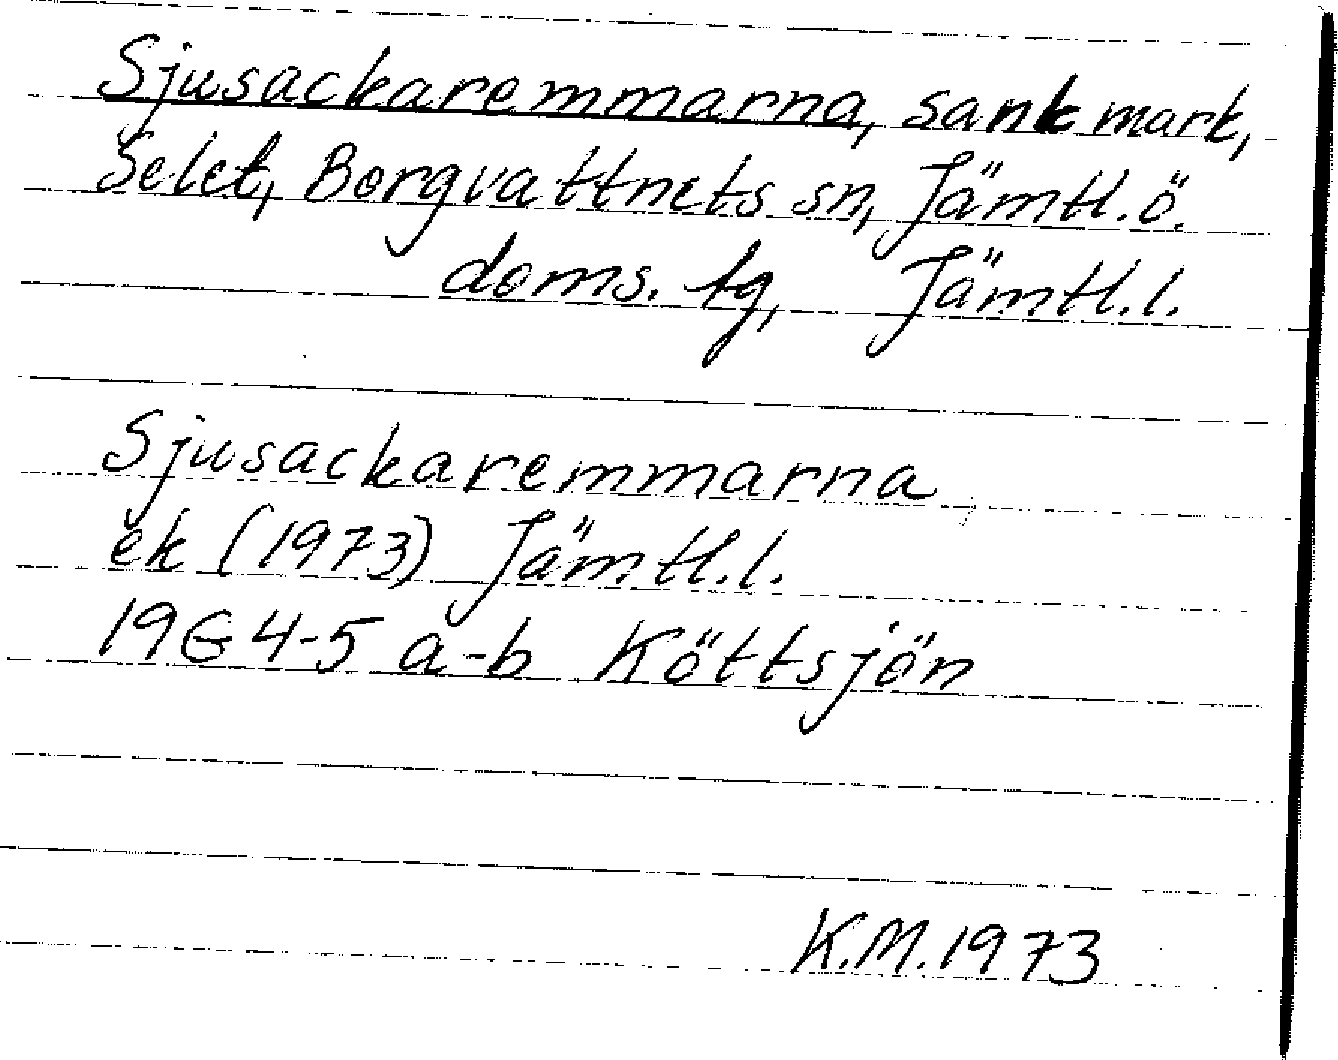 Sjusackaremmarna, sank mark,
Selet, Borgvattnets sn, Jämtl. ö.
doms. tg, Jämtl. l.
Sjusackaremmarna
ek (1973) Jämtl. l.
19G 4-5 a-b Köttsjön
K.M. 1973